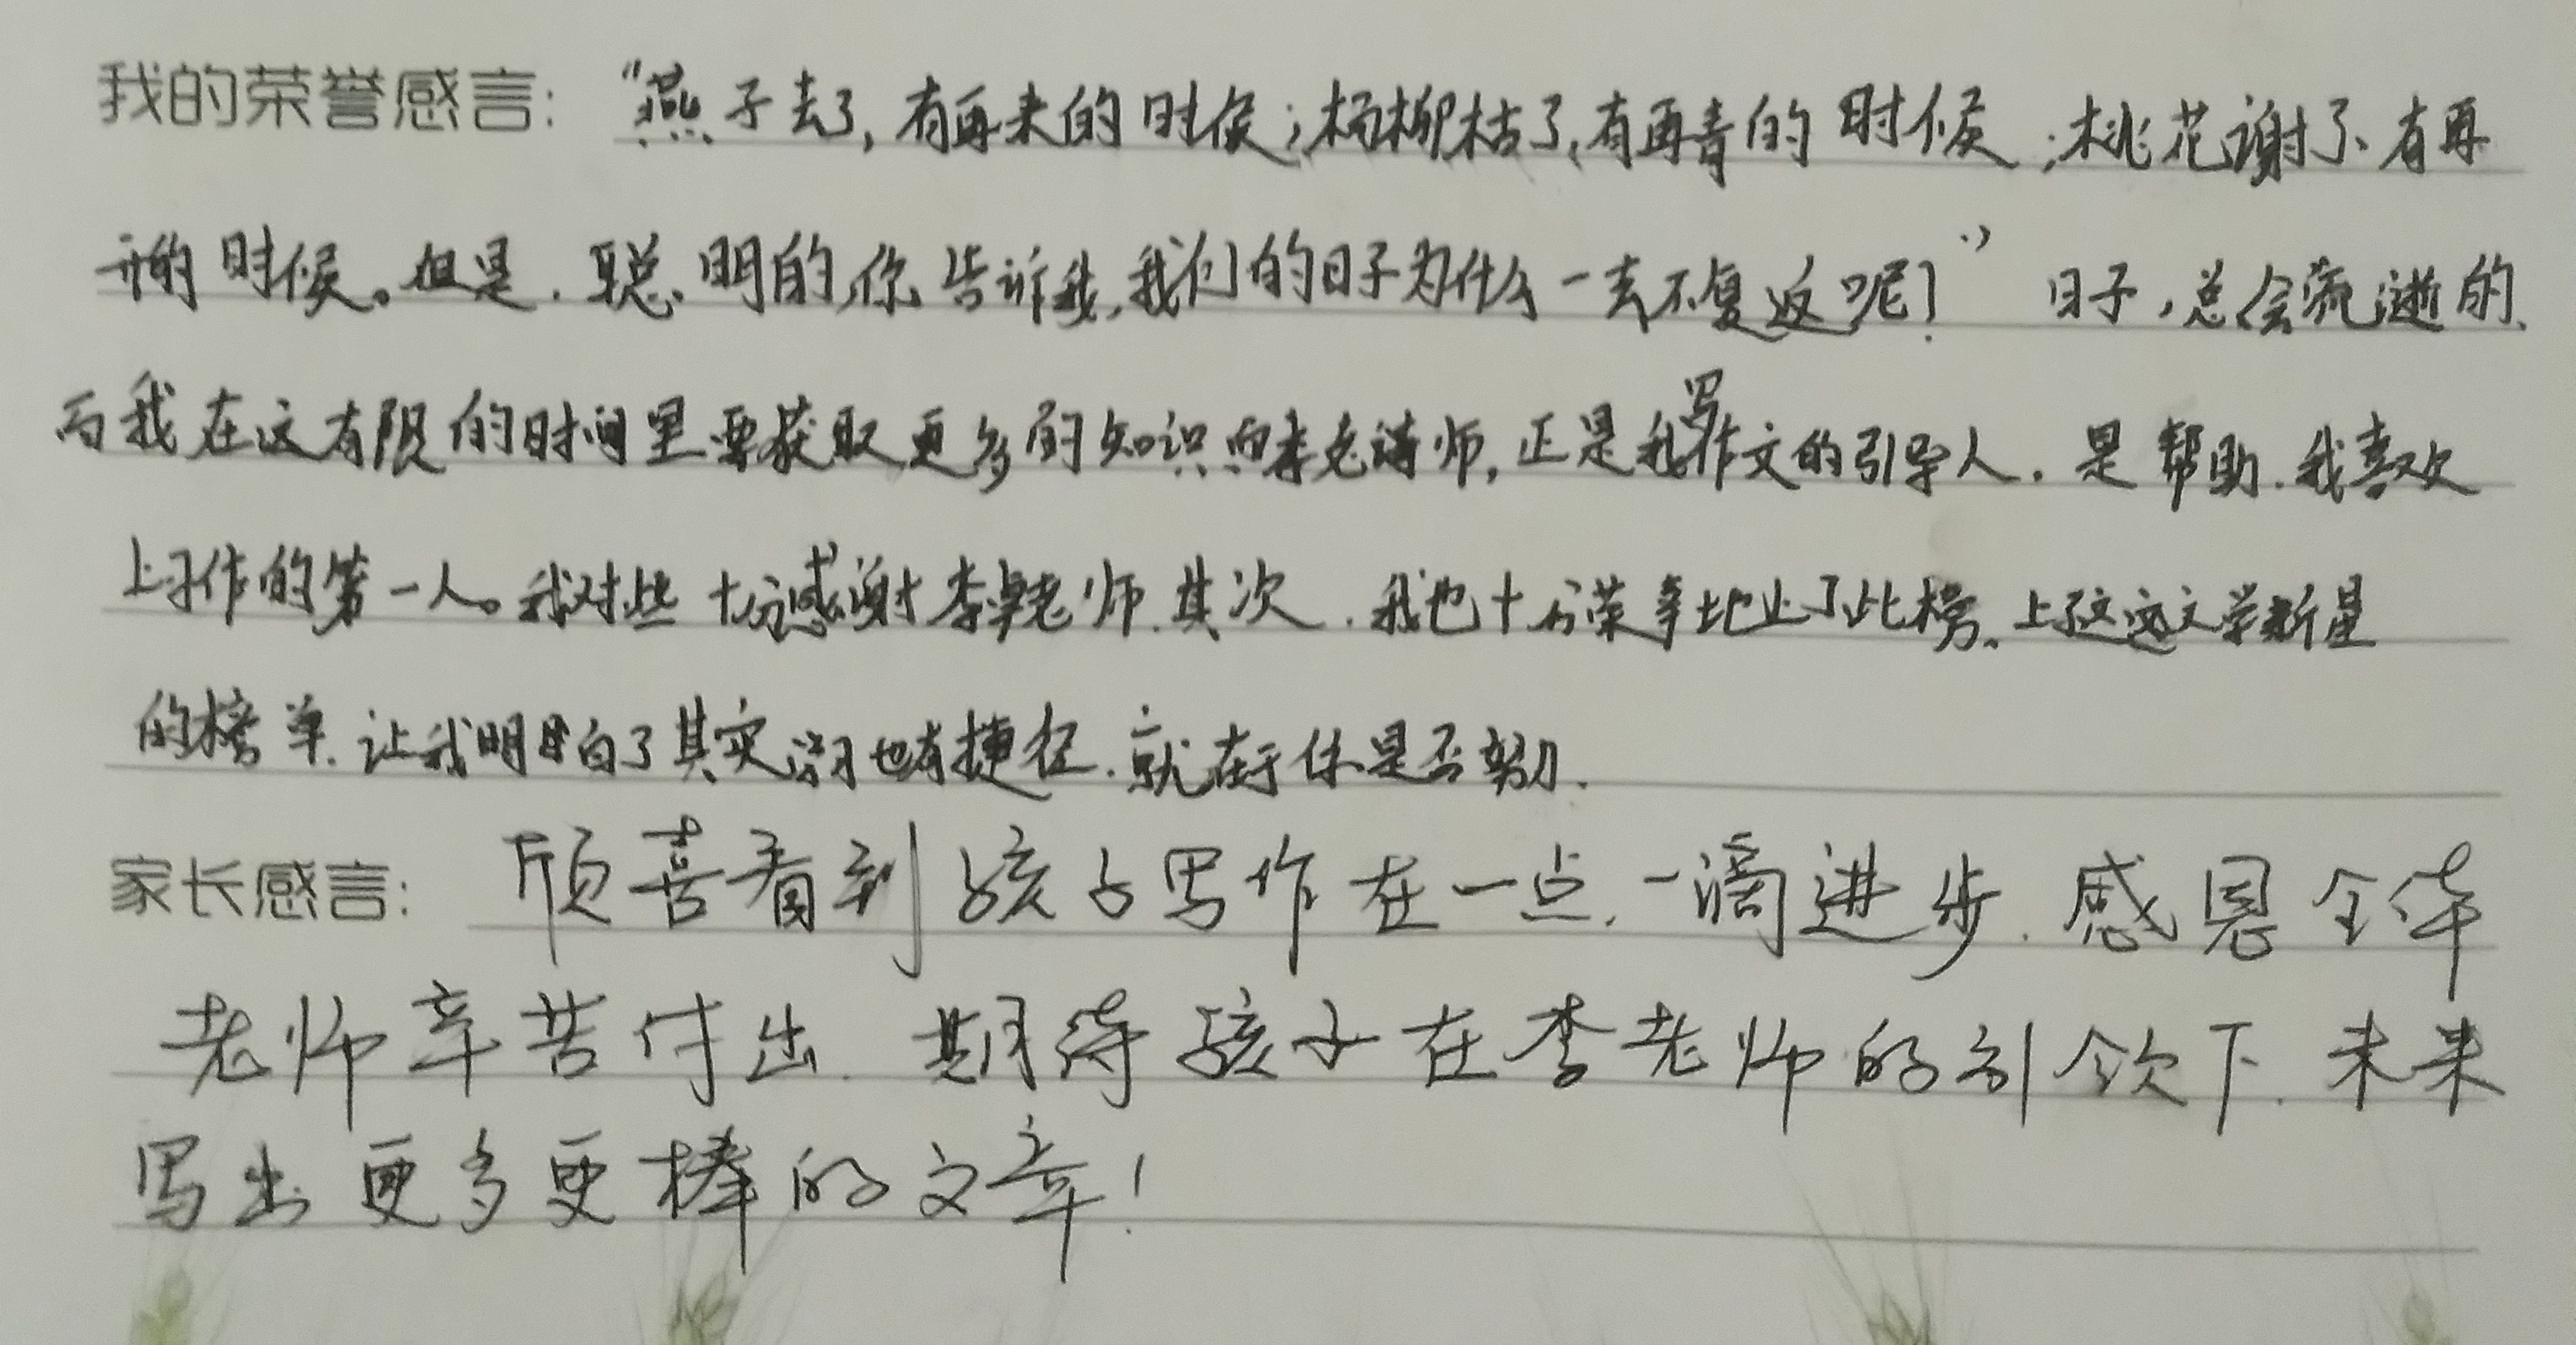 我的荣誉感言：“燕子去了，有再来的时候；杨柳枯了，有再青的时候；桃花谢了、有再
开的时候。但是，聪明的，你告诉我，我们的日子为什么一去不复返呢？” 日子，总会流逝的、
而我在这有限的时间里要获取更多的知识而李老师，正是我写作文的引导人，是帮助、我喜欢
上习作的第一人。我对此十分感谢李老师.其次，我也十分荣幸地上了此榜。上了这文学新星
的榜单、让我明白了其实学习也有捷径、就在于你是否努力.
家长感言：颀喜看到孩子写作在一点、一滴进步、感恩全体
老师辛苦付出、期待孩子在李老师的引领下、未来
写出更多更棒的文章！